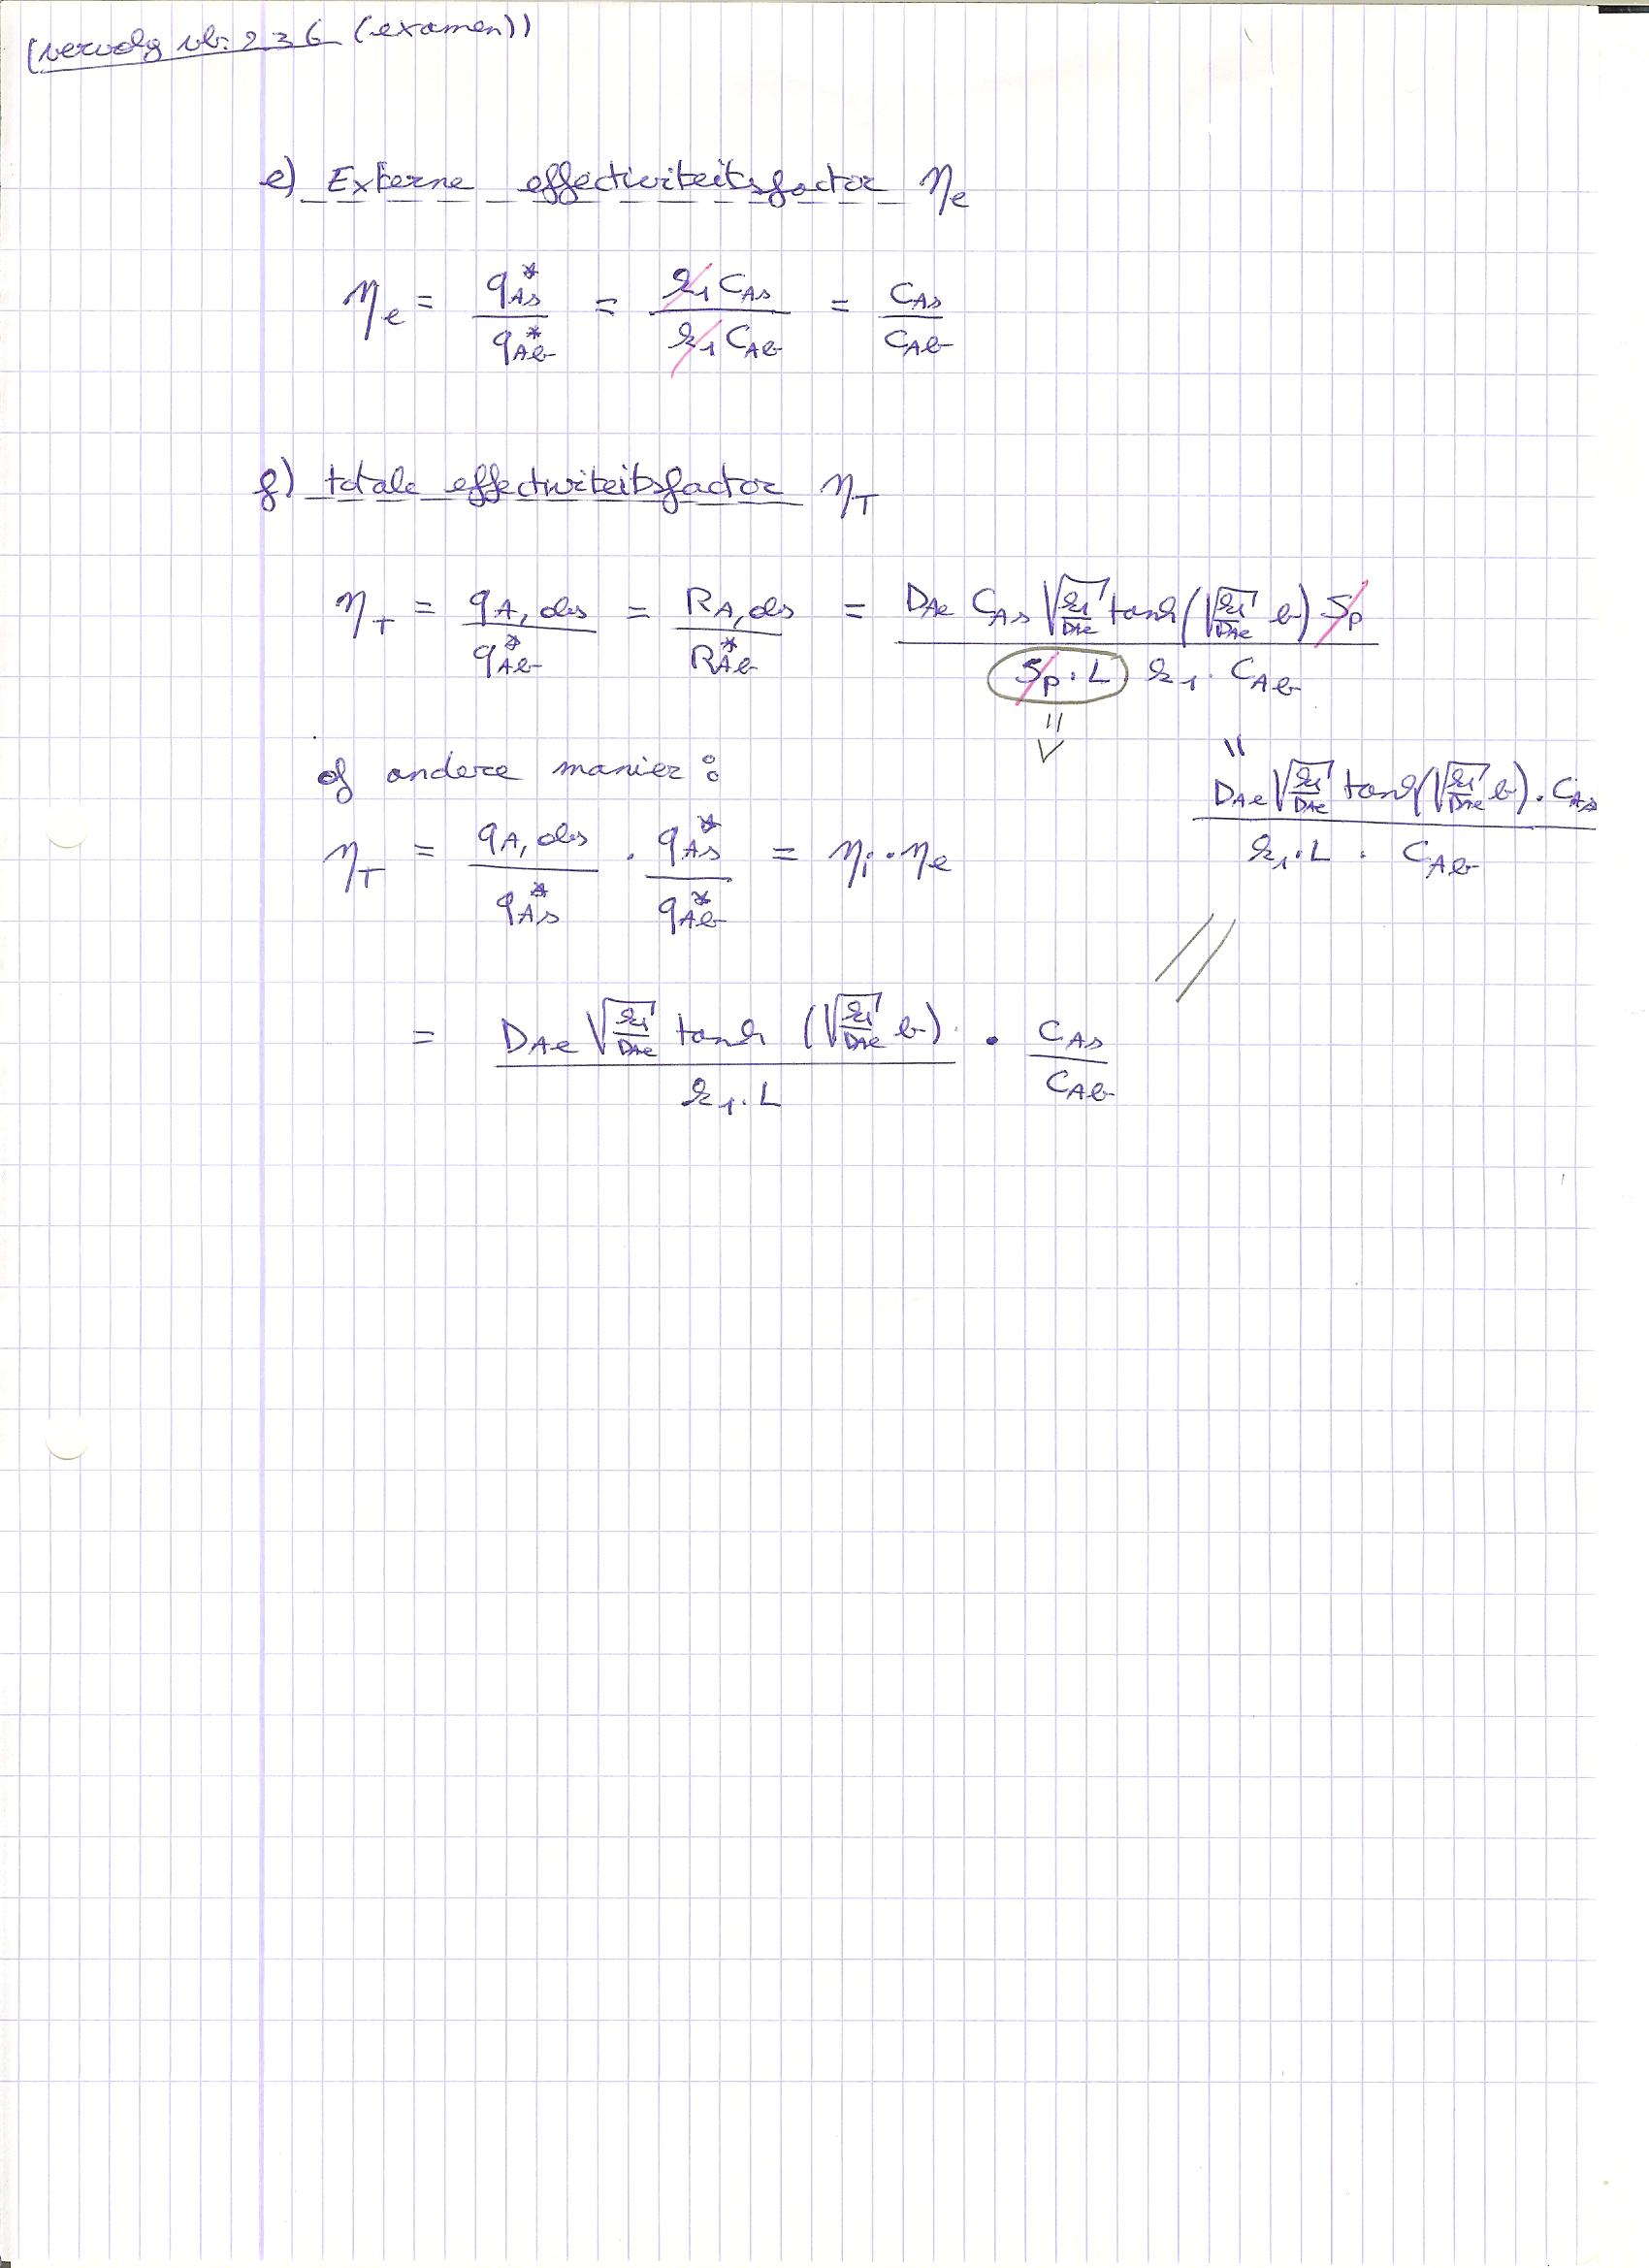 (vervolg vb. 2.36 (examen))
e) Externe effectiviteitsfactor ηe
ηe = q*As / q*Ab = k1 CAs / k1 CAb = CAs / CAb
f) totale effectiviteitsfactor ηT
ηT = qA,obs / q*Ab = RA,obs / R*Ab = DAe CAs √(k1/DAe) tanh(√(k1/DAe) b) Sp / Sp · L k1 · CAb
= V
of andere manier :
= DAe √(k1/DAe) tanh(√(k1/DAe) b) · CAs / k1 · L · CAb
ηT = qA,obs / q*As · q*As / q*Ab = ηi · ηe
= DAe √(k1/DAe) tanh (√(k1/DAe) b) / k1 · L · CAs / CAb